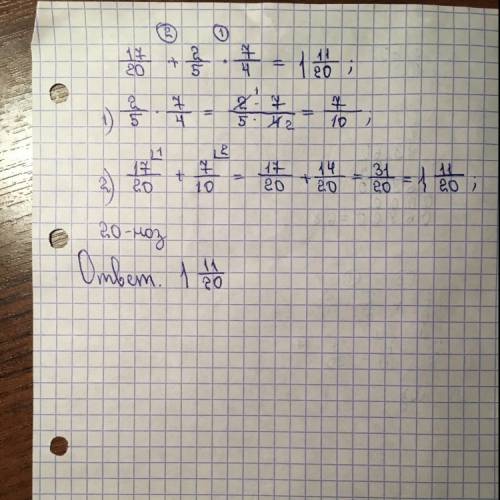 ② ①
17/20 + 2/5 · 7/4 = 1 11/20 ;
1) 2/5 · 7/4 = 2¹ · 7/5 · 4₂ = 7/10 ;
2) 17/20⌊¹ + 7/10⌊² = 17/20 + 14/20 = 31/20 = 1 11/20 ;
20-ноз
Ответ. 1 11/20